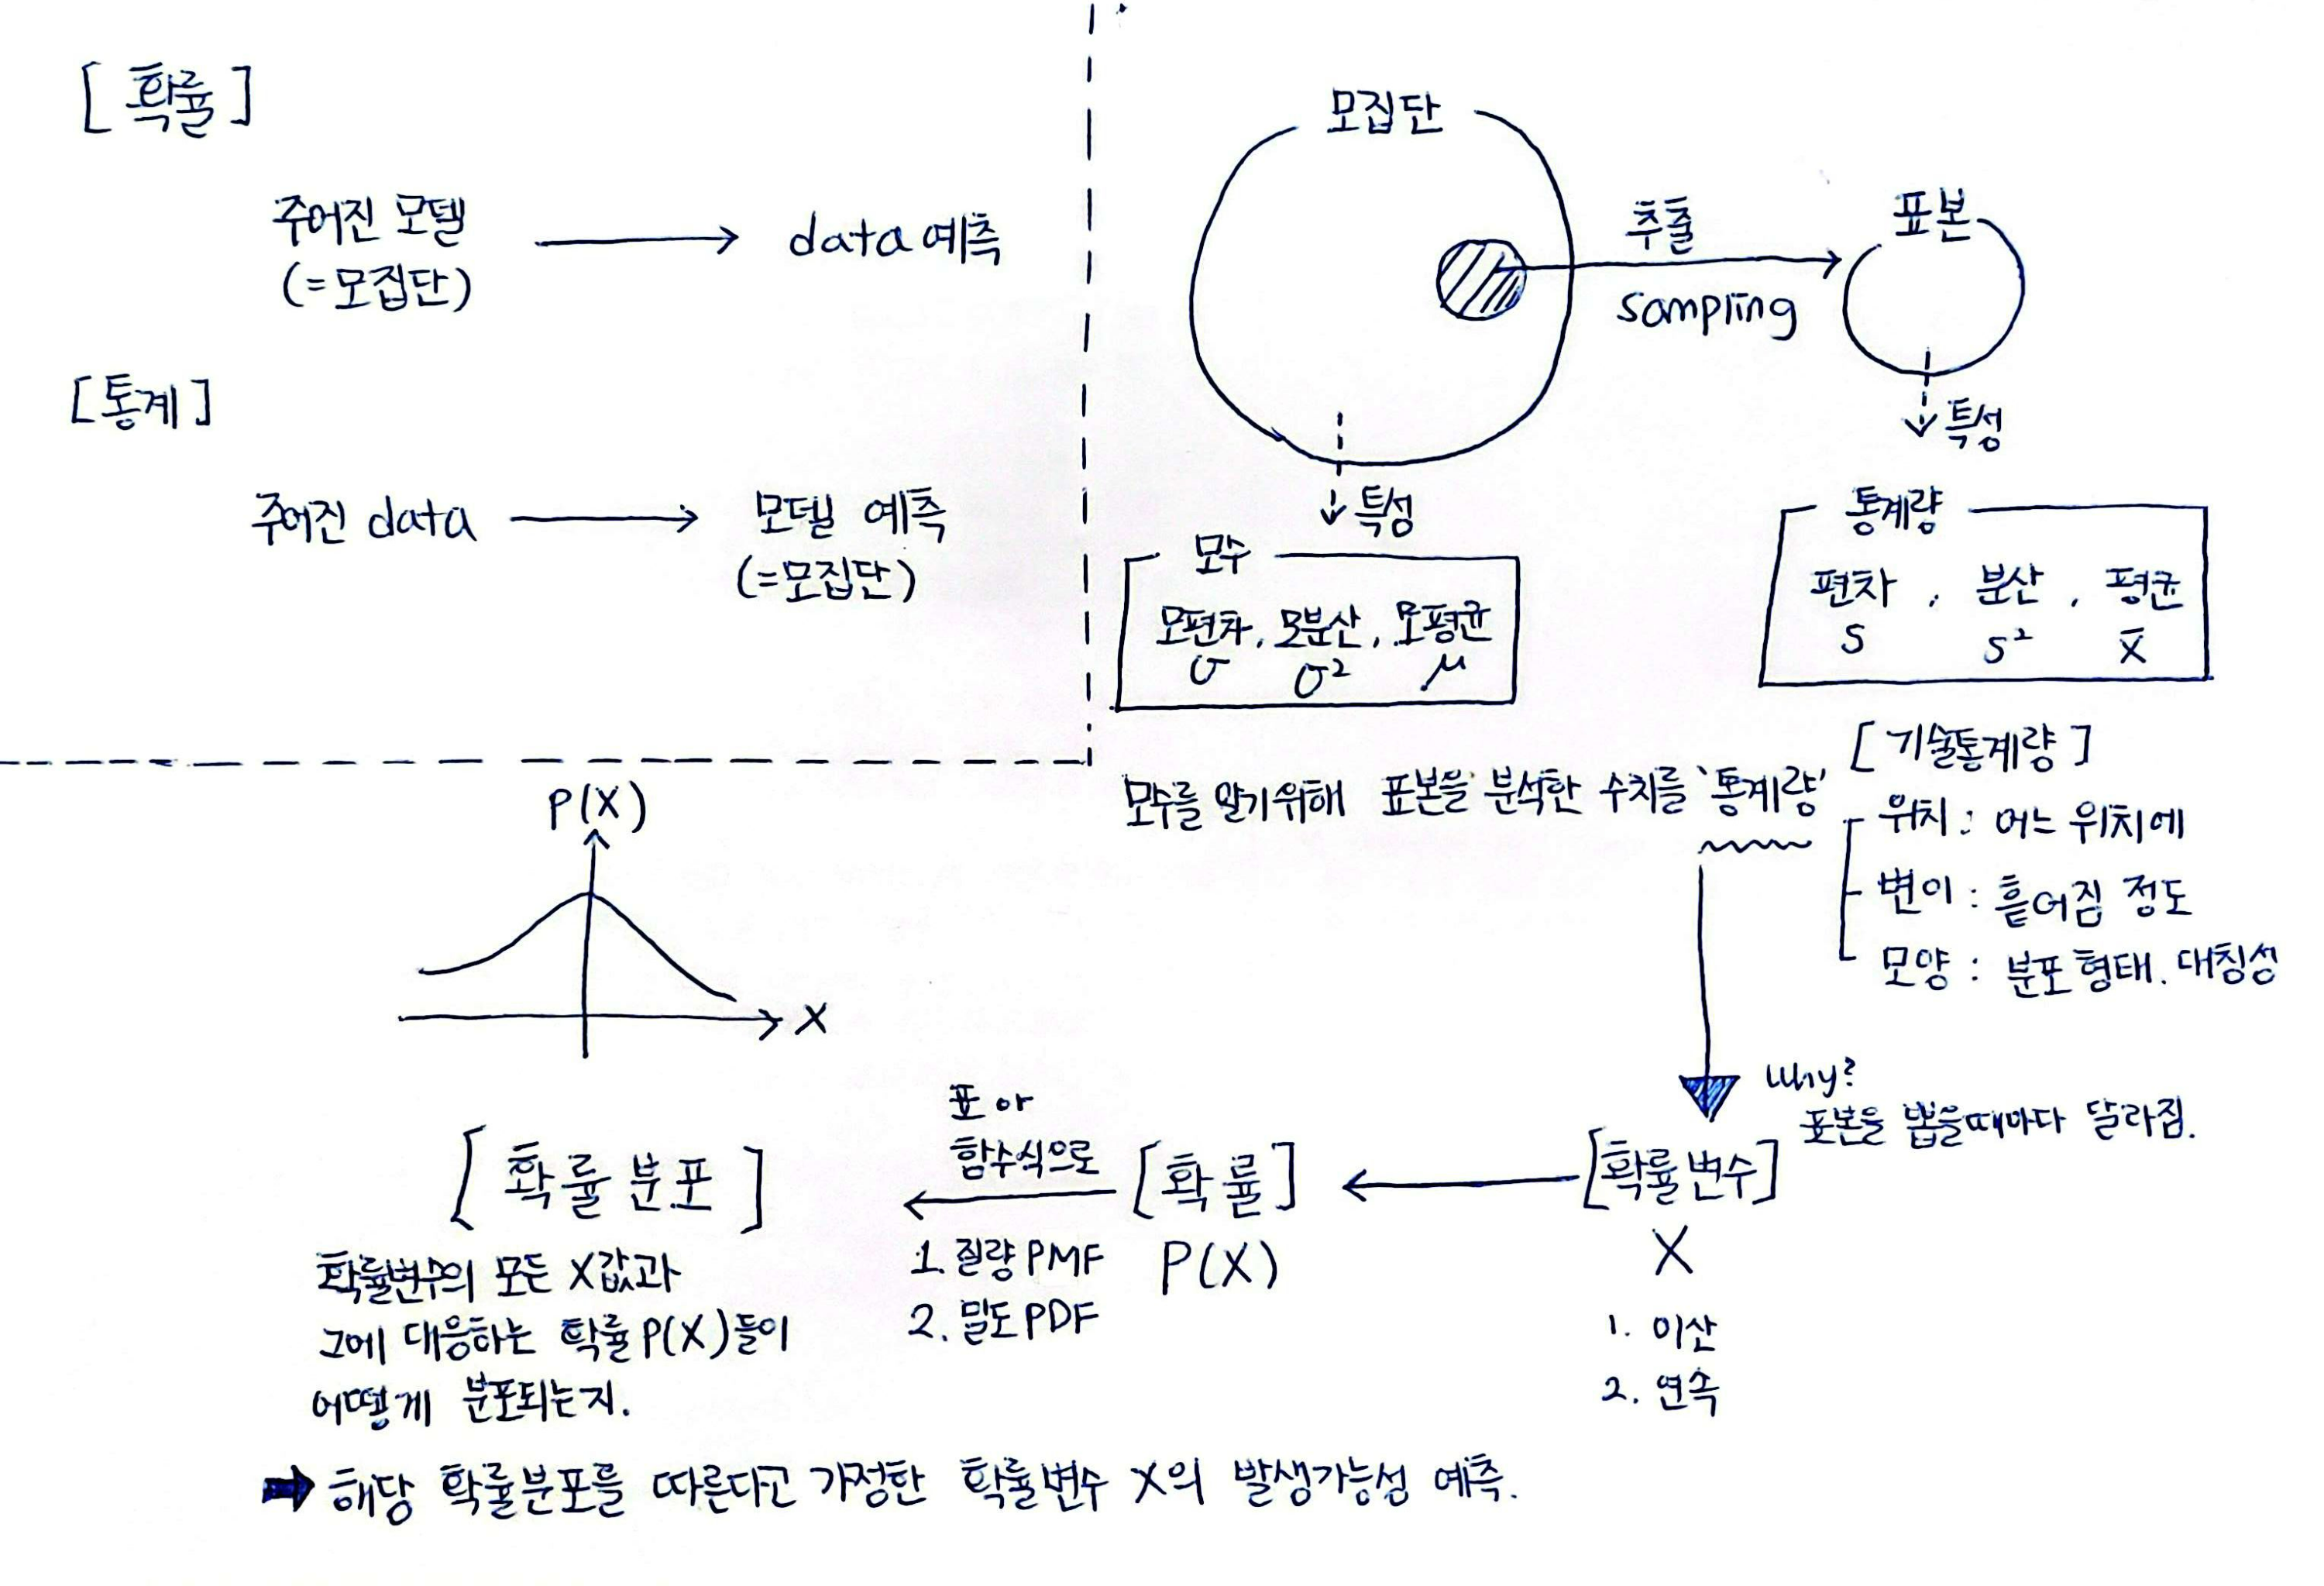 [확률]
주어진 모델
(=모집단)
data 예측
[통계]
주어진 data
모델 예측
(=모집단)
모집단
추출
sampling
표본
특성
특성
모수
모편차, 모분산, 모평균
σ σ² μ
통계량
편차, 분산, 평균
s s² x̄
모수를 알기위해 표본을 분석한 수치를 '통계량'
[기술통계량]
위치: 어느 위치에
변이: 흩어짐 정도
모양: 분포 형태. 대칭성
Why?
표본을 뽑을때마다 달라짐.
[확률변수]
X
1. 이산
2. 연속
[확률]
P(X)
표 or
함수식으로
1. 질량 PMF
2. 밀도 PDF
P(X)
X
[확률분포]
확률변수의 모든 X값과
그에 대응하는 확률 P(X)들이
어떻게 분포되는지.
➡ 해당 확률분포를 따른다고 가정한 확률변수 X의 발생가능성 예측.